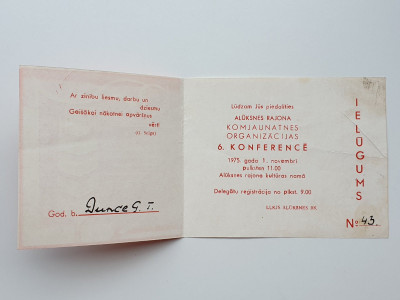 Ar zinību liesmu, darbu un
dziesmu
Gaišākai nākotnei apvārsnus
vērt!
God. b. Dunce G. T.
Lūdzam Jūs piedalīties
ALŪKSNES RAJONA
KOMJAUNATNES
ORGANIZĀCIJAS
6. KONFERENCĒ
1975. gada 1. novembrī
pulksten 11.00
Alūksnes rajona kultūras namā
Delegātu reģistrācija no plkst. 9.00
LĻKJS ALŪKSNES RK
IELŪGUMS
No 43